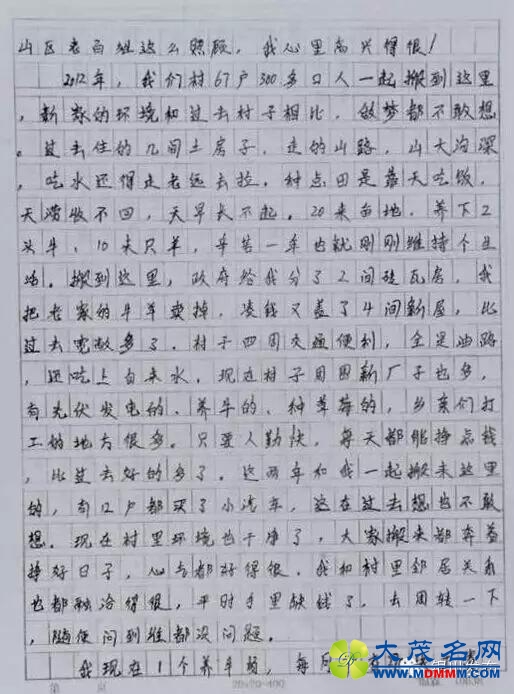 山区老百姓这么照顾，我心里高兴得很！
2012年，我们村67户300多口人一起搬到这里
，新家的环境和过去村子相比，做梦都不敢想
。过去住的几间土房子，走的山路，山大沟深
，吃水还得走老远去拉。种点田是靠天吃饭，
天涝收不回，天旱长不起。20来亩地，养下2
头牛、10来只羊，辛苦一年也就刚刚维持个生
活。搬到这里，政府给我分了2间砖瓦房，我
把老家的牛羊卖掉，凑钱又盖了4间新屋，比
过去宽敞多了。村子四周交通便利，全是油路
，还吃上自来水。现在村子周围新厂子也多，
有光伏发电的、养牛的、种草莓的，乡亲们打
工的地方很多。只要人勤快，每天都能挣点钱
，比过去好的多了。这两年和我一起搬来这里
的，有12户都买了小汽车，这在过去想也不敢
想。现在村里环境也干净了，大家搬来都奔着
挣好日子，心气都好得很。我和村里邻居关系
也都融洽得很，平时手里缺钱了，去周转一下
，随便问到谁都没问题。
我现在1个养牛场，每月
第 页
20×20=400
大茂名网
www.0668.com